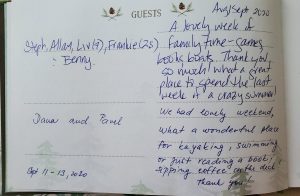 GUESTS
Aug/Sept 2020
Steph, Allan, Liv(4), Frankie(2s)
Benny
A lovely week of
family time - games
books boats. Thank you
so much! What a great
place to spend the last
week of a crazy summer
Dana and Pavel
Sept 11-13, 2020
We had lovely weekend,
what a wonderful place
for kayaking, swimming
or just reading a book,
sipping coffee on the deck
Thank you